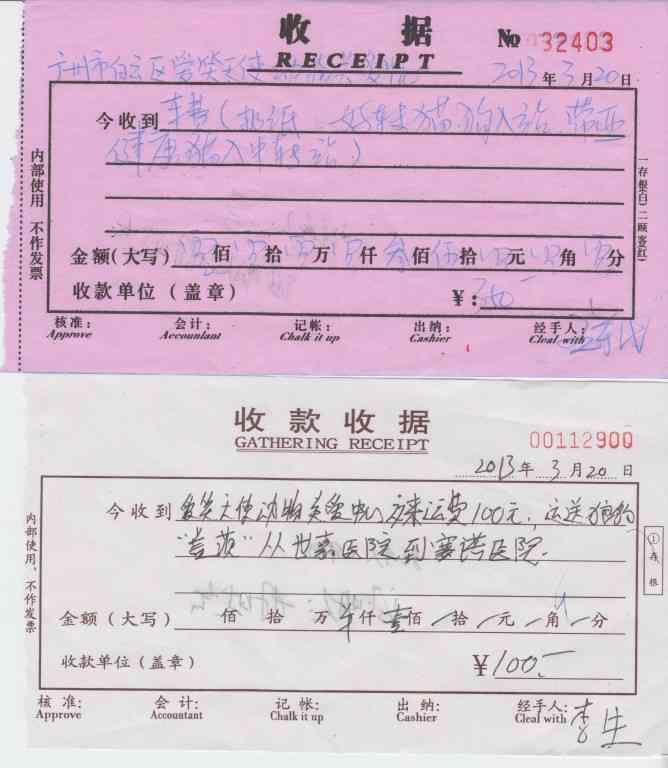 收 据
RECEIPT
№ 32403
广州市白云区爱笑天使
2013 年 3 月 20 日
今收到 车费(报纸
内部使用 不作发票
一(存根白)二(顾客红)
金额(大写) 佰 拾 万 仟 叁佰 伍拾 元 角 分
收款单位(盖章) ¥:350
核准: 会计: 记帐: 出纳: 经手人:
Approve Accountant Chalk it up Cashier Cleal with
收 款 收 据
GATHERING RECEIPT
00112900
2013 年 3 月 20 日
今收到 爱笑天使动物关爱中心 交来运费100元,运送狼狗
从世嘉医院到赛诺医院.
内部使用、不作发票
① 存根
金额(大写) 佰 拾 万 仟 壹佰 拾 元 角 分
收款单位(盖章) ¥100.—
核 准: 会 计: 记 帐: 出 纳: 经手人: 李生
Approve Accountant Chalk it up Cashier Cleal with